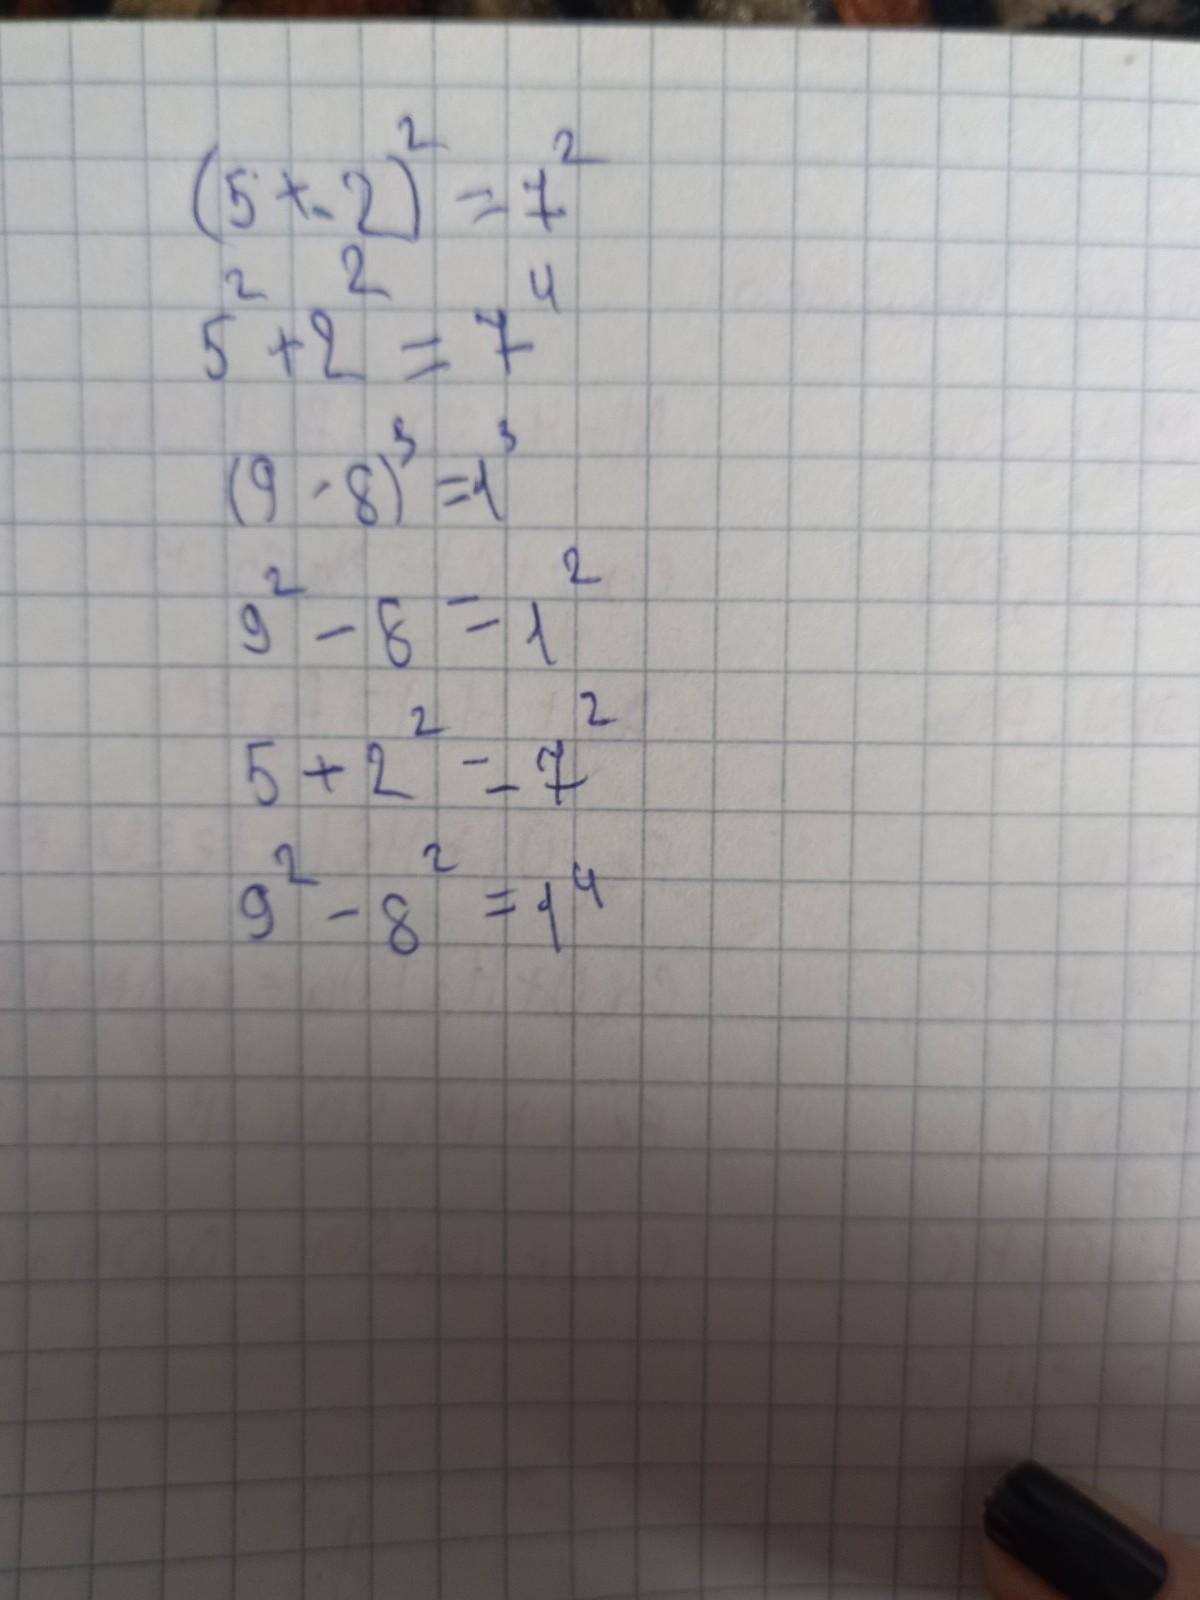 (5+2)² = 7²
5² + 2² = 7⁴
(9 - 8)³ = 1³
9² - 8 = 1²
5 + 2² = 7²
9² - 8² = 1⁴